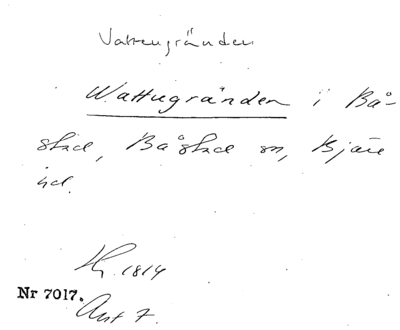 Vattengränden
Wattugränden i Bå-
stad, Båstad sn, Bjäre
hd.
Hy. 1814
Nr 7017.
Akt 7.